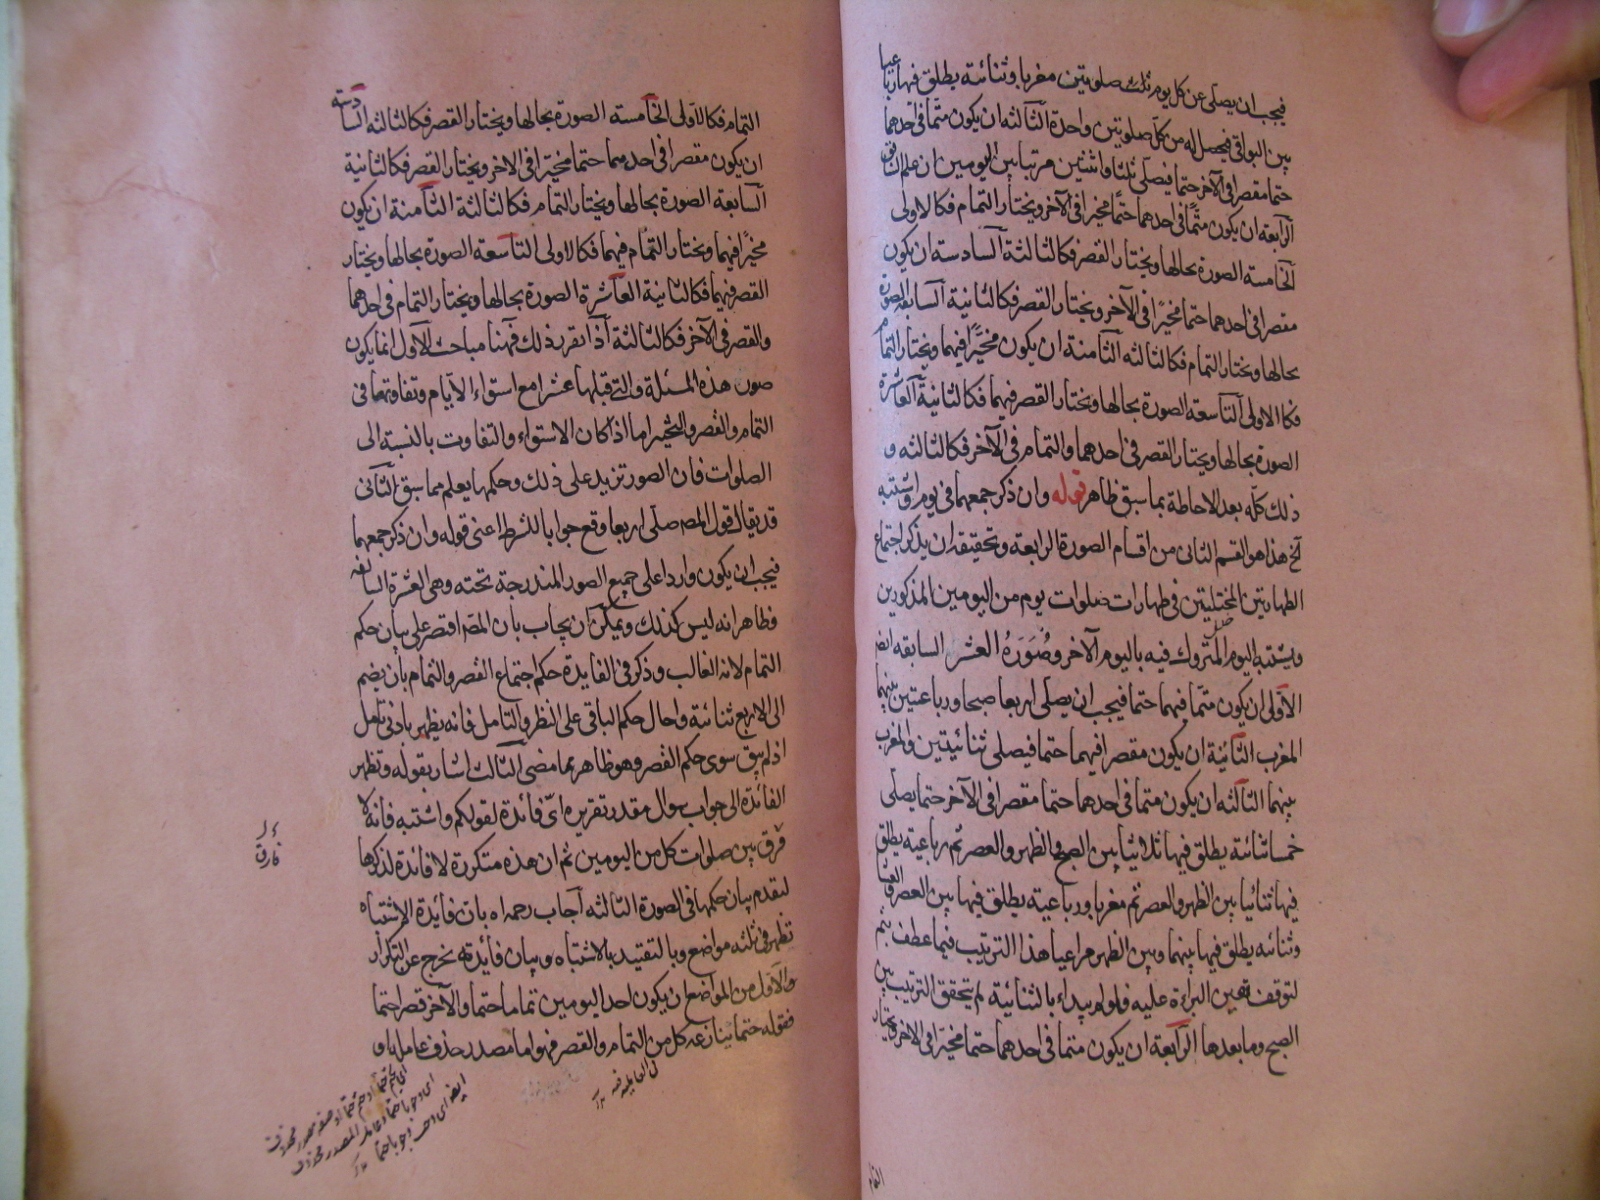 فيجب ان يصلى عن كل يوم ثلث صلويتين مغربا وثنائية يطلق فيها رباعيا
بين البواقى فيحصل له من كل صلويتين واحدة الثالثه ان يكون متما فى احدهما
حتما مقصرا فى الآخر حتما فيصلى ثلثا واثنين مرتبا بين اليومين ان علم
الرابعة ان يكون متما فى احدهما حتما مخيرا فى الآخر ويختار التمام فكالاولى
الخامسة الصورة بحالها ويختار القصر فكالثالثة السادسة ان يكون
مقصرا فى احدهما حتما مخيرا فى الآخر ويختار القصر فكالثانية السابعة الصورة
بحالها ويختار التمام فكالثالثه الثامنة ان يكون مخيرا فيهما ويختار التمام
فكالاولى التاسعة الصورة بحالها ويختار القصر فيهما فكالثانية العاشرة
الصورة بحالها ويختار القصر فى احدهما والتمام فى الآخر فكالثالثه و
ذلك كله بعد الاحاطة بما سبق ظاهر قوله وان ذكر جمعهما فى يوم واشتبه
آلخ هذا هو القسم الثانى من اقسام الصورة الرابعة وتحقيقه ان يذكر اجتماع
الطهارتين المختلتين فى طهارات صلوات يوم من اليومين المذكورين
ويشتبه اليوم المتروك فيه باليوم الآخر وصوره العشر السابقه ايضا
الاولى ان يكون متما فيهما حتما فيجب ان يصلى اربعا صبحا ورباعتين بينهما
المغرب الثانية ان يكون مقصرا فيهما حتما فيصلى ثنائيتين والمغرب
بينهما الثالثه ان يكون متما فى احدهما حتما مقصرا فى الآخر حتما يصلى
خمسا ثنائية يطلق فيها ثلاثيا بين الصبح والظهر والعصر ثم رباعية يطلق
فيها ثنائيا بين الظهر والعصر ثم مغربا ورباعية يطلق فيها بين العصر والعشا
وثنائيه يطلق فيها بينهما وبين الظهر مراعيا هذا الترتيب فيما عطف بثم
لتوقف تعين البراءة عليه فلو لم يبداء بالثنائية لم يتحقق الترتيب بين
الصبح وما بعدها الرابعة ان يكون متما فى احدهما حتما مخيرا فى الاخر ويختار
التمام
التمام فكالاولى الخامسة الصورة بحالها ويختار القصر فكالثالثه السادسة
ان يكون مقصرا فى احدهما حتما مخيرا فى الاخر ويختار القصر فكالثانية
السابعة الصورة بحالها ويختار التمام فكالثالثة الثامنة ان يكون
مخيرا فيهما ويختار التمام فيهما فكالاولى التاسعة الصورة بحالها ويختار
القصر فيهما فكالثانية العاشرة الصورة بحالها ويختار التمام فى احدهما
والقصر فى الآخر فكالثالثة اذا تقرر ذلك فههنا مباحث الاول انما يكون
صور هذه المسئلة والتى قبلها عشرا مع استواء الايام وتفاوتها فى
التمام والقصر والتخيير اما اذا كان الاستواء والتفاوت بالنسبة الى
الصلوات فان الصور تزيد على ذلك وحكمها يعلم مما سبق الثانى
قد يقال قول المص صلى اربعا وقع جوابا للشرط اعنى قوله وان ذكر جمعهما
فيجب ان يكون واردا على جميع الصور المندرجة تحته وهى العشرة السالفه
وظاهر انه ليس كذلك ويمكن ان يجاب بان المص اقتصر على بيان حكم
التمام لانه الغالب وذكر فى الفايدة حكم اجتماع القصر والتمام بان يضم
الى الاربع ثنائية واحال حكم الباقى على النظر والتامل فانه يظهر بادنى تامل
اذ لم يبق سوى حكم القصر وهو ظاهر بما مضى الثالث اشار بقوله وتظهر
الفائدة الى جواب سوال مقدر تقريره اىّ فائدة لقولكم واشتبه فانه لا
فرق بين صلوات كل من اليومين ثم ان هذه متكررة لا فائدة لذكرها
لتقدم بيان حكمها فى الصورة الثالثه اجاب رحمه اه بان فايدة الاشتباه
تظهر فى ثلثه مواضع وبالتقييد بالاشتباه وبيان فائدته يخرج عن التكرار
والاول من المواضع ان يكون احد اليومين تماما حتما والآخر قصرا حتما
فقوله حتما يتنازعه كل من التمام والقصر فهو اما مصدر حذف عامله
فارق